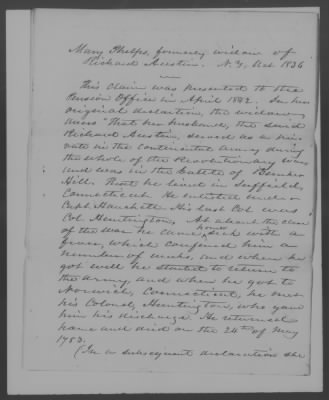 Mary Phelps, formerly widow of
Richard Austin. N.Y. Act 1836
This claim was presented to the
Pension Office in April 1842. In her
original declaration, the widow
avers "That her husband, the said
Richard Austin, served as a pri-
vate in the Continental Army during
the whole of the Revolutionary War
and was in the Battle of Bunker
Hill. That he lived in Suffield,
Connecticut. He enlisted under
Capt Hanchett. His last Col was
Col Huntington. At about the close
of the war he came home sick with a
fever, which confined him a
number of weeks, and when he
got well he started to return to
the army, and when he got to
Norwich, Connecticut, he met
his Colonel, Huntington, who gave
him his discharge. He returned
home and died on the 24th of May
1783.
(In a subsequent declaration she